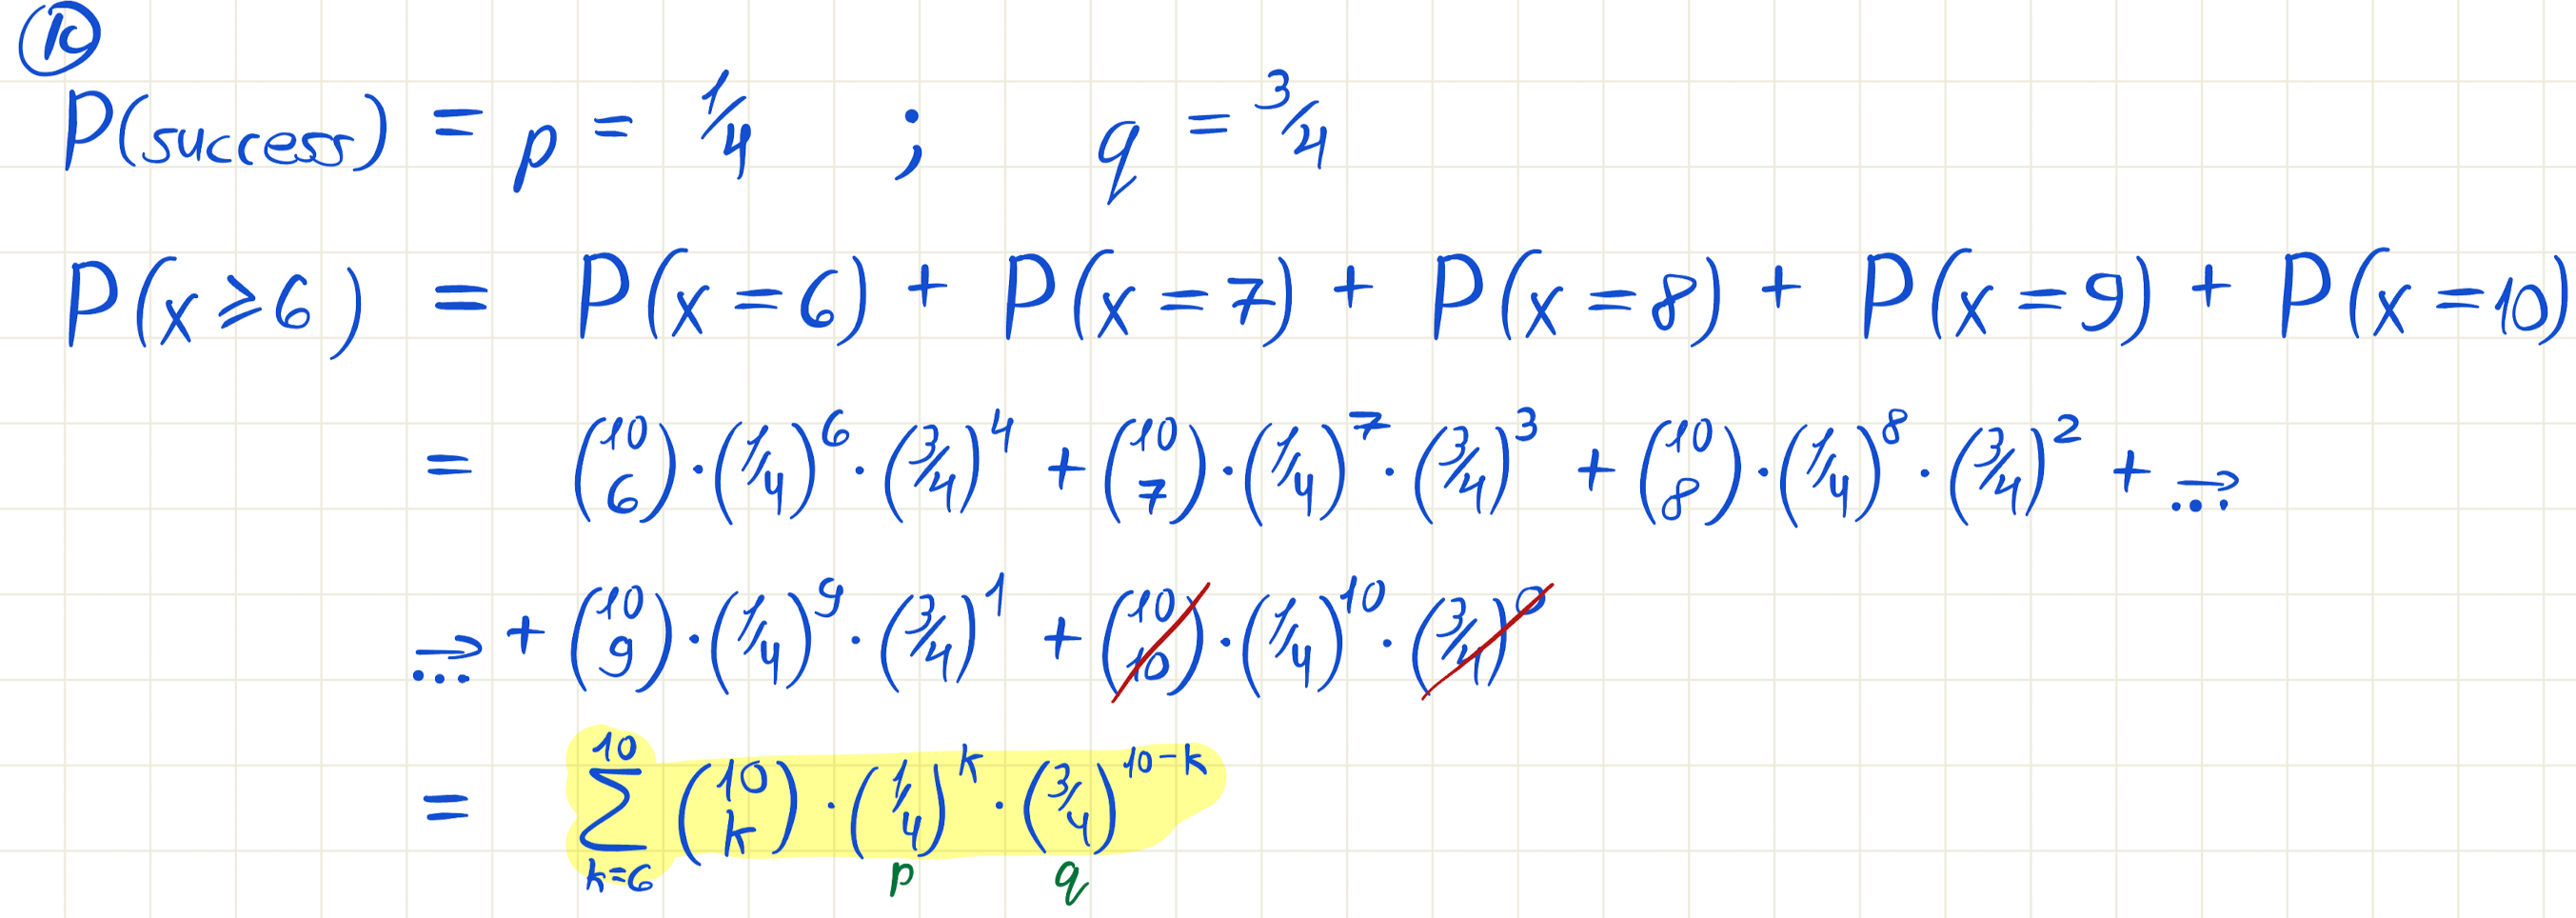 10
P(success) = p = 1/4 ; q = 3/4
P(x ⩾ 6) = P(x = 6) + P(x = 7) + P(x = 8) + P(x = 9) + P(x = 10)
= (10 6) · (1/4)^6 · (3/4)^4 + (10 7) · (1/4)^7 · (3/4)^3 + (10 8) · (1/4)^8 · (3/4)^2 + ...→
...→ + (10 9) · (1/4)^9 · (3/4)^1 + (10 10) · (1/4)^10 · (3/4)^0
= ∑_{k=6}^{10} (10 k) · (1/4)^k · (3/4)^{10-k}
p q